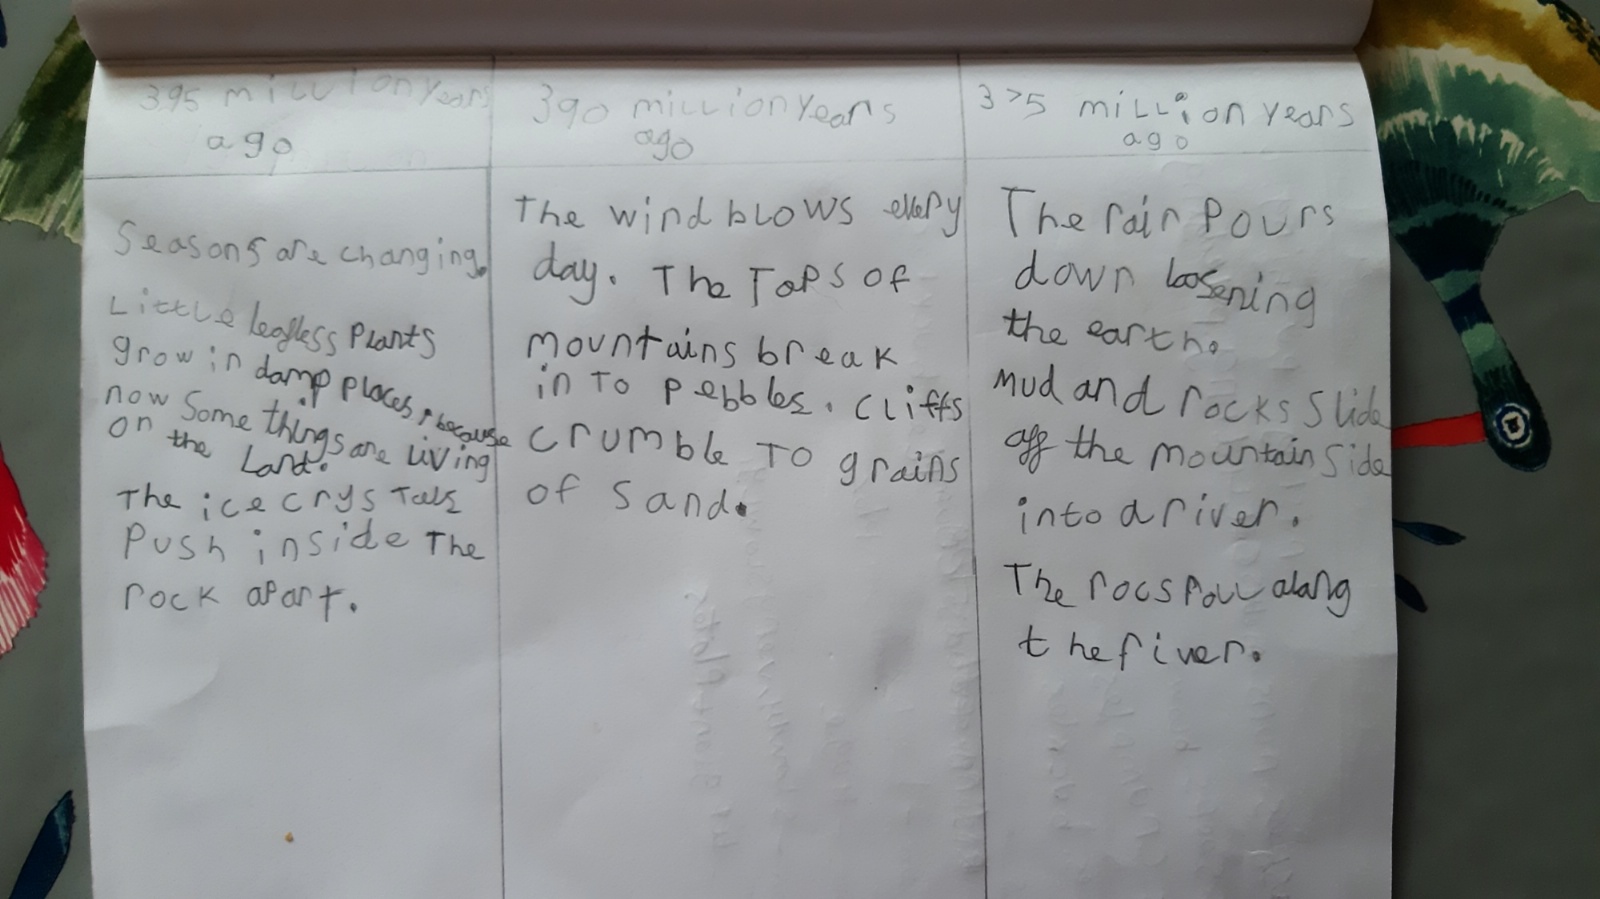 395 million years
ago
Seasons are changing.
Little leafless plants
grow in damp places, because
now some things are living
on the land.
The ice crystals
Push inside the
rock apart.
390 million years
ago
The wind blows every
day. The Tops of
mountains break
in To pebbles. Cliffs
crumble To grains
of sand.
375 million years
ago
The rain Pours
down loosening
the earth.
Mud and rocks slide
off the mountain side
into a river.
The rocs roll along
the river.